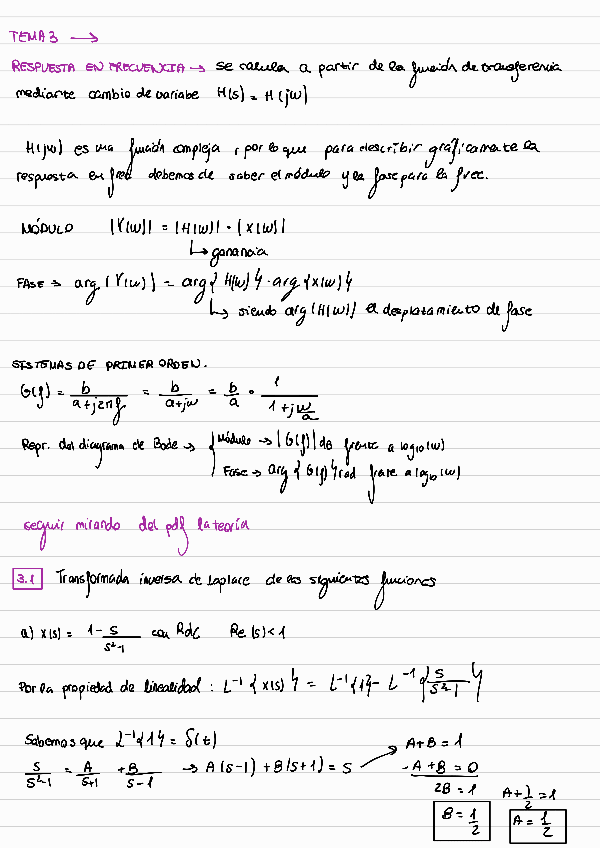 TEMA 3 →
RESPUESTA EN FRECUENCIA → se calcula a partir de la función de transferencia
mediante cambio de variabe H(s) = H(jω)
H(jω) es una función compleja, por lo que para describir gráficamente la
respuesta en frec debemos de saber el módulo y la fase para la frec.
MÓDULO |Y(ω)| = |H(ω)| · |X(ω)|
↳ ganancia
FASE → arg{Y(ω)} = arg{H(ω)} · arg{X(ω)}
↳ siendo arg{H(ω)} el desplazamiento de fase
SISTEMAS DE PRIMER ORDEN.
G(f) = b/(a+j2πf) = b/(a+jω) = b/a · 1/(1+jω/a)
Repr. del diagrama de Bode → { Módulo → |G(f)| dB frente a log10(ω)
Fase → arg{G(f)} rad frente a log10(ω)
seguir mirando del pdf la teoría
3.1 Transformada inversa de Laplace de las siguientes funciones
a) X(s) = 1 - s/(s²-1) con RdC Re(s)<1
Por la propiedad de linealidad : L⁻¹{X(s)} = L⁻¹{1} - L⁻¹{s/(s²-1)}
Sabemos que L⁻¹{1} = δ(t)
s/(s²-1) = A/(s+1) + B/(s-1) → A(s-1) + B(s+1) = s
A+B = 1
-A+B = 0
2B = 1
B = 1/2
A + 1/2 = 1
A = 1/2